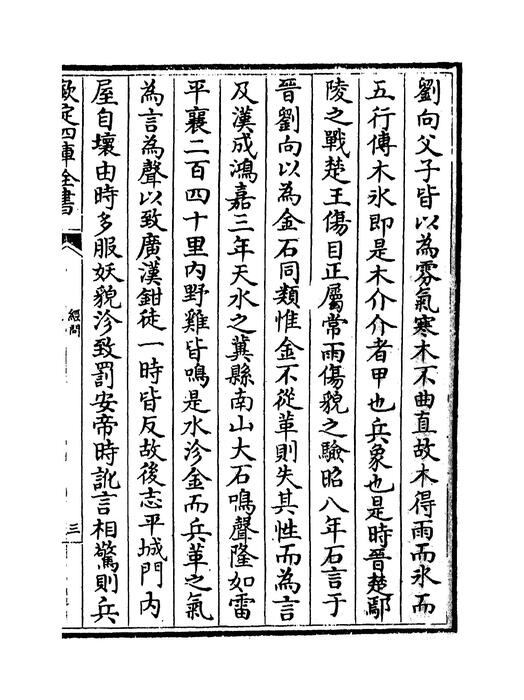 劉向父子皆以為雰氣寒木不曲直故木得雨而氷而
五行傳木氷即是木介介者甲也兵象也是時晉楚鄢
陵之戰楚王傷目正屬常雨傷貌之驗昭八年石言于
晉劉向以為金石同類惟金不從革則失其性而為言
及漢成鴻嘉三年天水之冀縣南山大石鳴聲隆如雷
平襄二百四十里内野雞皆鳴是水沴金而兵革之氣
為言為聲以致廣漢鉗徒一時皆反故後志平城門内
屋自壞由時多服妖貌沴致罰安帝時訛言相驚則兵
欽定四庫全書
經問
三